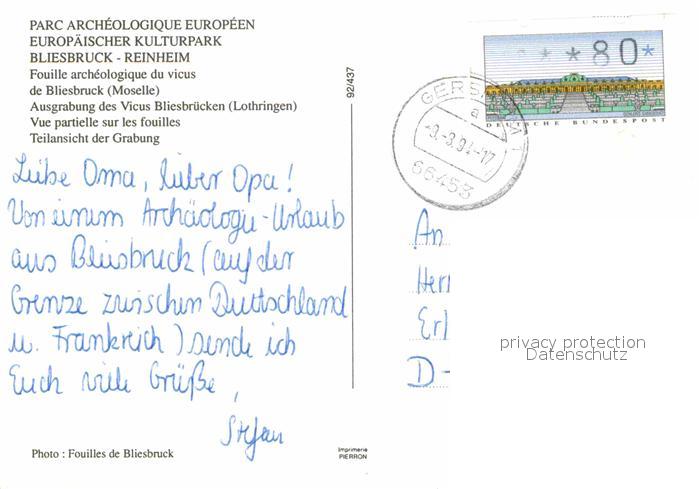 PARC ARCHÉOLOGIQUE EUROPÉEN
EUROPÄISCHER KULTURPARK
BLIESBRUCK - REINHEIM
Fouille archéologique du vicus
de Bliesbruck (Moselle)
Ausgrabung des Vicus Bliesbrücken (Lothringen)
Vue partielle sur les fouilles
Teilansicht der Grabung
Liebe Oma, lieber Opa!
Von einem Archäologie-Urlaub
aus Bliesbruck (auf der
Grenze zwischen Deutschland
u. Frankreich) sende ich
Euch viele Grüße,
Stefan
Photo : Fouilles de Bliesbruck
92/437
Imprimerie
PIERRON
**80*
DEUTSCHE BUNDESPOST
a
-9.-3.94-17
66453
An
Her
Erl
D-
privacy protection
Datenschutz